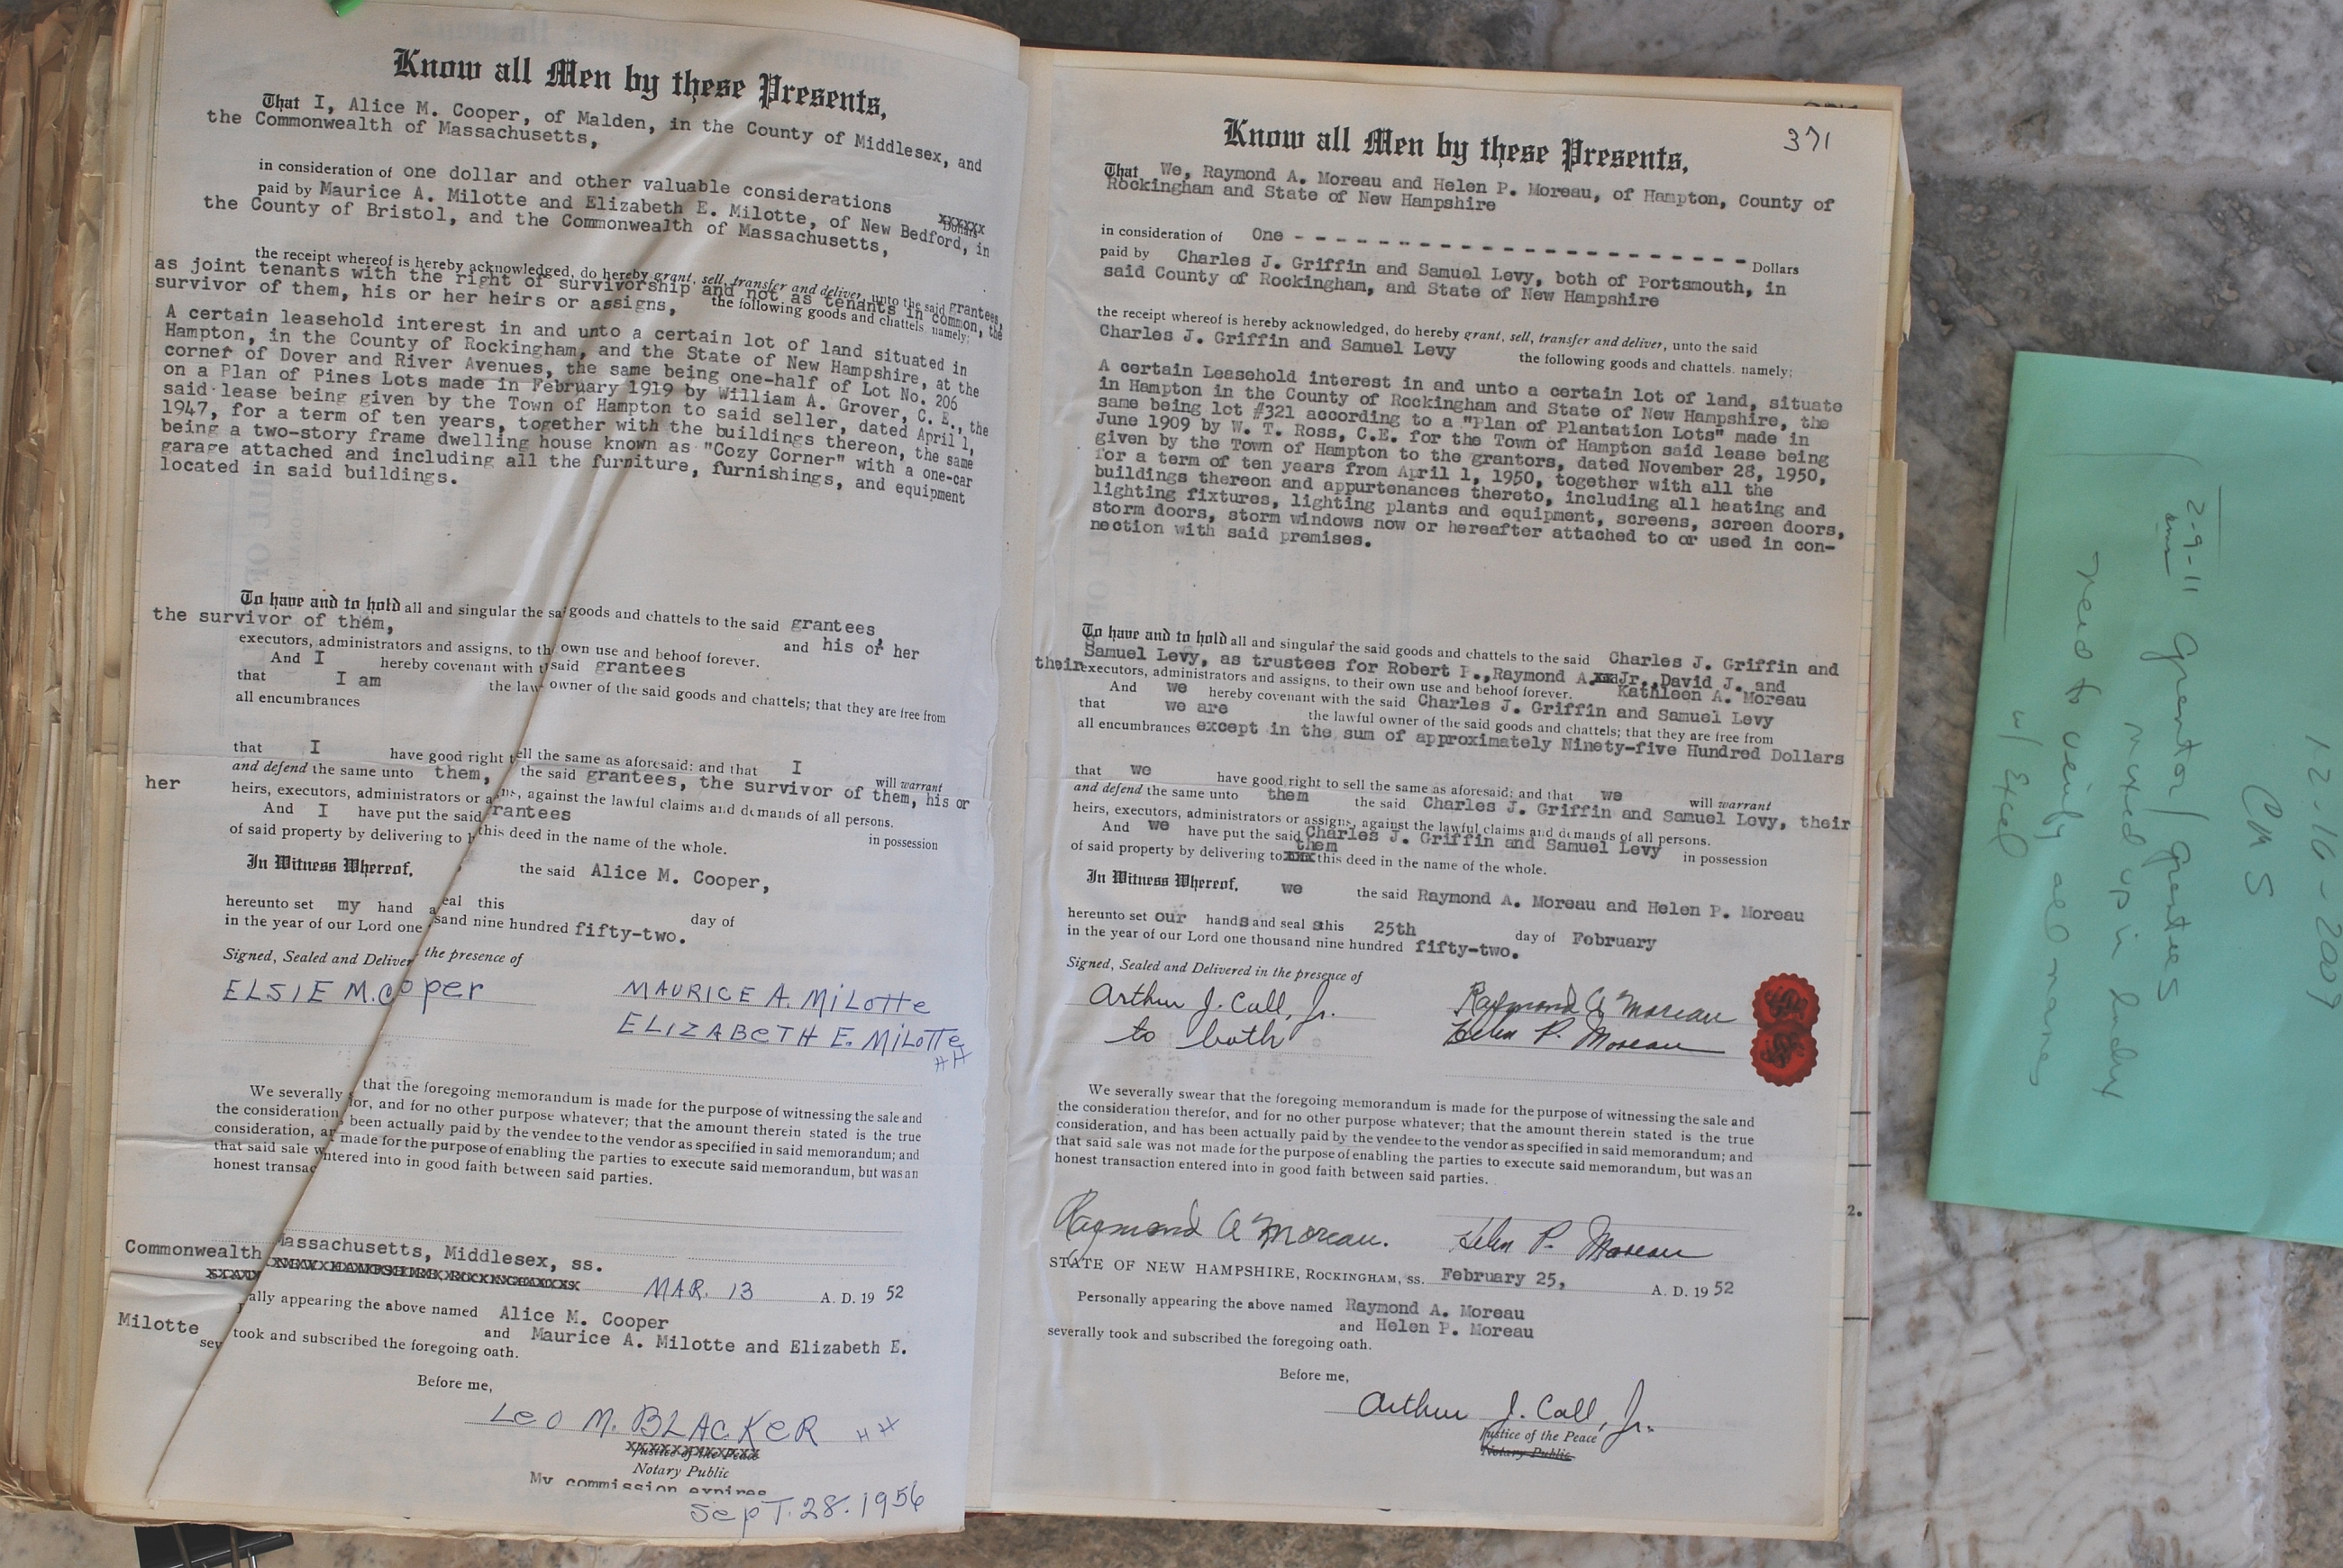 Know all Men by these Presents,
That I, Alice M. Cooper, of Malden, in the County of Middlesex, and
the Commonwealth of Massachusetts,
in consideration of one dollar and other valuable considerations xxxxxx Dollars
paid by Maurice A. Milotte and Elizabeth E. Milotte, of New Bedford, in
the County of Bristol, and the Commonwealth of Massachusetts,
the receipt whereof is hereby acknowledged, do hereby grant, sell, transfer and deliver, unto the said grantees,
as joint tenants with the right of survivorship and not as tenants in common, the
survivor of them, his or her heirs or assigns, the following goods and chattels, namely;
A certain leasehold interest in and unto a certain lot of land situated in
Hampton, in the County of Rockingham, and the State of New Hampshire, at the
corner of Dover and River Avenues, the same being one-half of Lot No. 206
on a Plan of Pines Lots made in February 1919 by William A. Grover, C. E., the
said lease being given by the Town of Hampton to said seller, dated April 1,
1947, for a term of ten years, together with the buildings thereon, the same
being a two-story frame dwelling house known as "Cozy Corner" with a one-car
garage attached and including all the furniture, furnishings, and equipment
located in said buildings.
To have and to hold all and singular the sa goods and chattels to the said grantees,
the survivor of them, and his or her
executors, administrators and assigns, to th own use and behoof forever.
And I hereby covenant with t said grantees
that I am the law owner of the said goods and chattels; that they are free from
all encumbrances
that I have good right t ell the same as aforesaid: and that I will warrant
and defend the same unto them, the said grantees, the survivor of them, his or
her heirs, executors, administrators or a ns, against the lawful claims and demands of all persons.
And I have put the said rantees in possession
of said property by delivering to h this deed in the name of the whole.
In Witness Whereof, the said Alice M. Cooper,
hereunto set my hand a eal this day of
in the year of our Lord one sand nine hundred fifty-two.
Signed, Sealed and Deliver the presence of
ELSIE M. Cooper MAURICE A. MiLotte
ELIZABETH E. MiLoTTe
HH
We severally that the foregoing memorandum is made for the purpose of witnessing the sale and
the consideration for, and for no other purpose whatever; that the amount therein stated is the true
consideration, an been actually paid by the vendee to the vendor as specified in said memorandum; and
that said sale w made for the purpose of enabling the parties to execute said memorandum, but was an
honest transac ntered into in good faith between said parties.
Commonwealth Massachusetts, Middlesex, ss.
MAR. 13 A. D. 19 52
ally appearing the above named Alice M. Cooper
and Maurice A. Milotte and Elizabeth E.
Milotte
sev took and subscribed the foregoing oath.
Before me,
Leo M. BLACKeR HH
Justice of the Peace
Notary Public
My commission expires
SepT. 28. 1956
371
Know all Men by these Presents,
That We, Raymond A. Moreau and Helen P. Moreau, of Hampton, County of
Rockingham and State of New Hampshire
in consideration of One - - - - - - - - - - - - - - - - - - - - - - - - Dollars
paid by Charles J. Griffin and Samuel Levy, both of Portsmouth, in
said County of Rockingham, and State of New Hampshire
the receipt whereof is hereby acknowledged, do hereby grant, sell, transfer and deliver, unto the said
Charles J. Griffin and Samuel Levy the following goods and chattels. namely;
A certain Leasehold interest in and unto a certain lot of land, situate
in Hampton in the County of Rockingham and State of New Hampshire, the
same being lot #321 according to a "Plan of Plantation Lots" made in
June 1909 by W. T. Ross, C.E. for the Town of Hampton said lease being
given by the Town of Hampton to the grantors, dated November 28, 1950,
for a term of ten years from April 1, 1950, together with all the
buildings thereon and appurtenances thereto, including all heating and
lighting fixtures, lighting plants and equipment, screens, screen doors,
storm doors, storm windows now or hereafter attached to or used in con-
nection with said premises.
To have and to hold all and singular the said goods and chattels to the said Charles J. Griffin and
Samuel Levy, as trustees for Robert P., Raymond A. xxx Jr., David J. and
their executors, administrators and assigns, to their own use and behoof forever. Kathleen A. Moreau
And we hereby covenant with the said Charles J. Griffin and Samuel Levy
that we are the lawful owner of the said goods and chattels; that they are free from
all encumbrances except in the sum of approximately Ninety-five Hundred Dollars
that we have good right to sell the same as aforesaid: and that we will warrant
and defend the same unto them the said Charles J. Griffin and Samuel Levy, their
heirs, executors, administrators or assigns, against the lawful claims and demands of all persons.
And we have put the said Charles J. Griffin and Samuel Levy in possession
them
of said property by delivering to xxx this deed in the name of the whole.
In Witness Whereof, we the said Raymond A. Moreau and Helen P. Moreau
hereunto set our hands and seal sthis 25th day of February
in the year of our Lord one thousand nine hundred fifty-two.
Signed, Sealed and Delivered in the presence of
Arthur J. Call, Jr. Raymond A Moreau
to both Helen P. Moreau
We severally swear that the foregoing memorandum is made for the purpose of witnessing the sale and
the consideration therefor, and for no other purpose whatever; that the amount therein stated is the true
consideration, and has been actually paid by the vendee to the vendor as specified in said memorandum; and
that said sale was not made for the purpose of enabling the parties to execute said memorandum, but was an
honest transaction entered into in good faith between said parties.
Raymond A Moreau. Helen P. Moreau
STATE OF NEW HAMPSHIRE, ROCKINGHAM, ss. February 25, A. D. 19 52
Personally appearing the above named Raymond A. Moreau
and Helen P. Moreau
severally took and subscribed the foregoing oath.
Before me,
Arthur J. Call, Jr.
Justice of the Peace
Notary Public
2.
12-16-2009
CMS
2-9-11 Grantor/grantees
mixed up in index
need to verify all names
w/ Excel